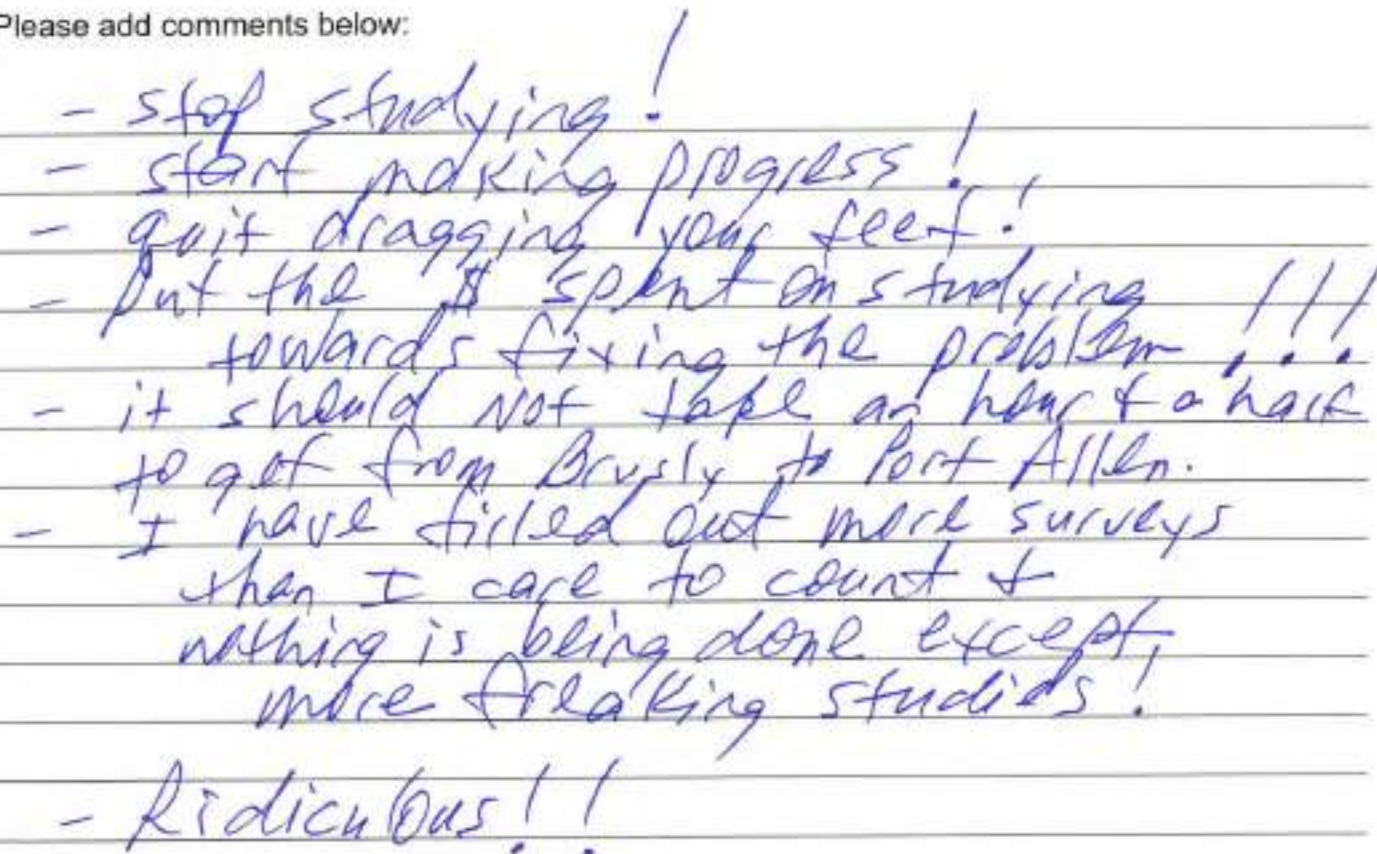 Please add comments below:
- stop studying!
- start making progress!
- quit dragging your feet!
- put the $ spent on studying
towards fixing the problem !!!
- it should NOT take an hour & a half
to get from Brusly to Port Allen.
- I have filled out more surveys
than I care to count &
nothing is being done except
more freaking studies!
- Ridiculous!!